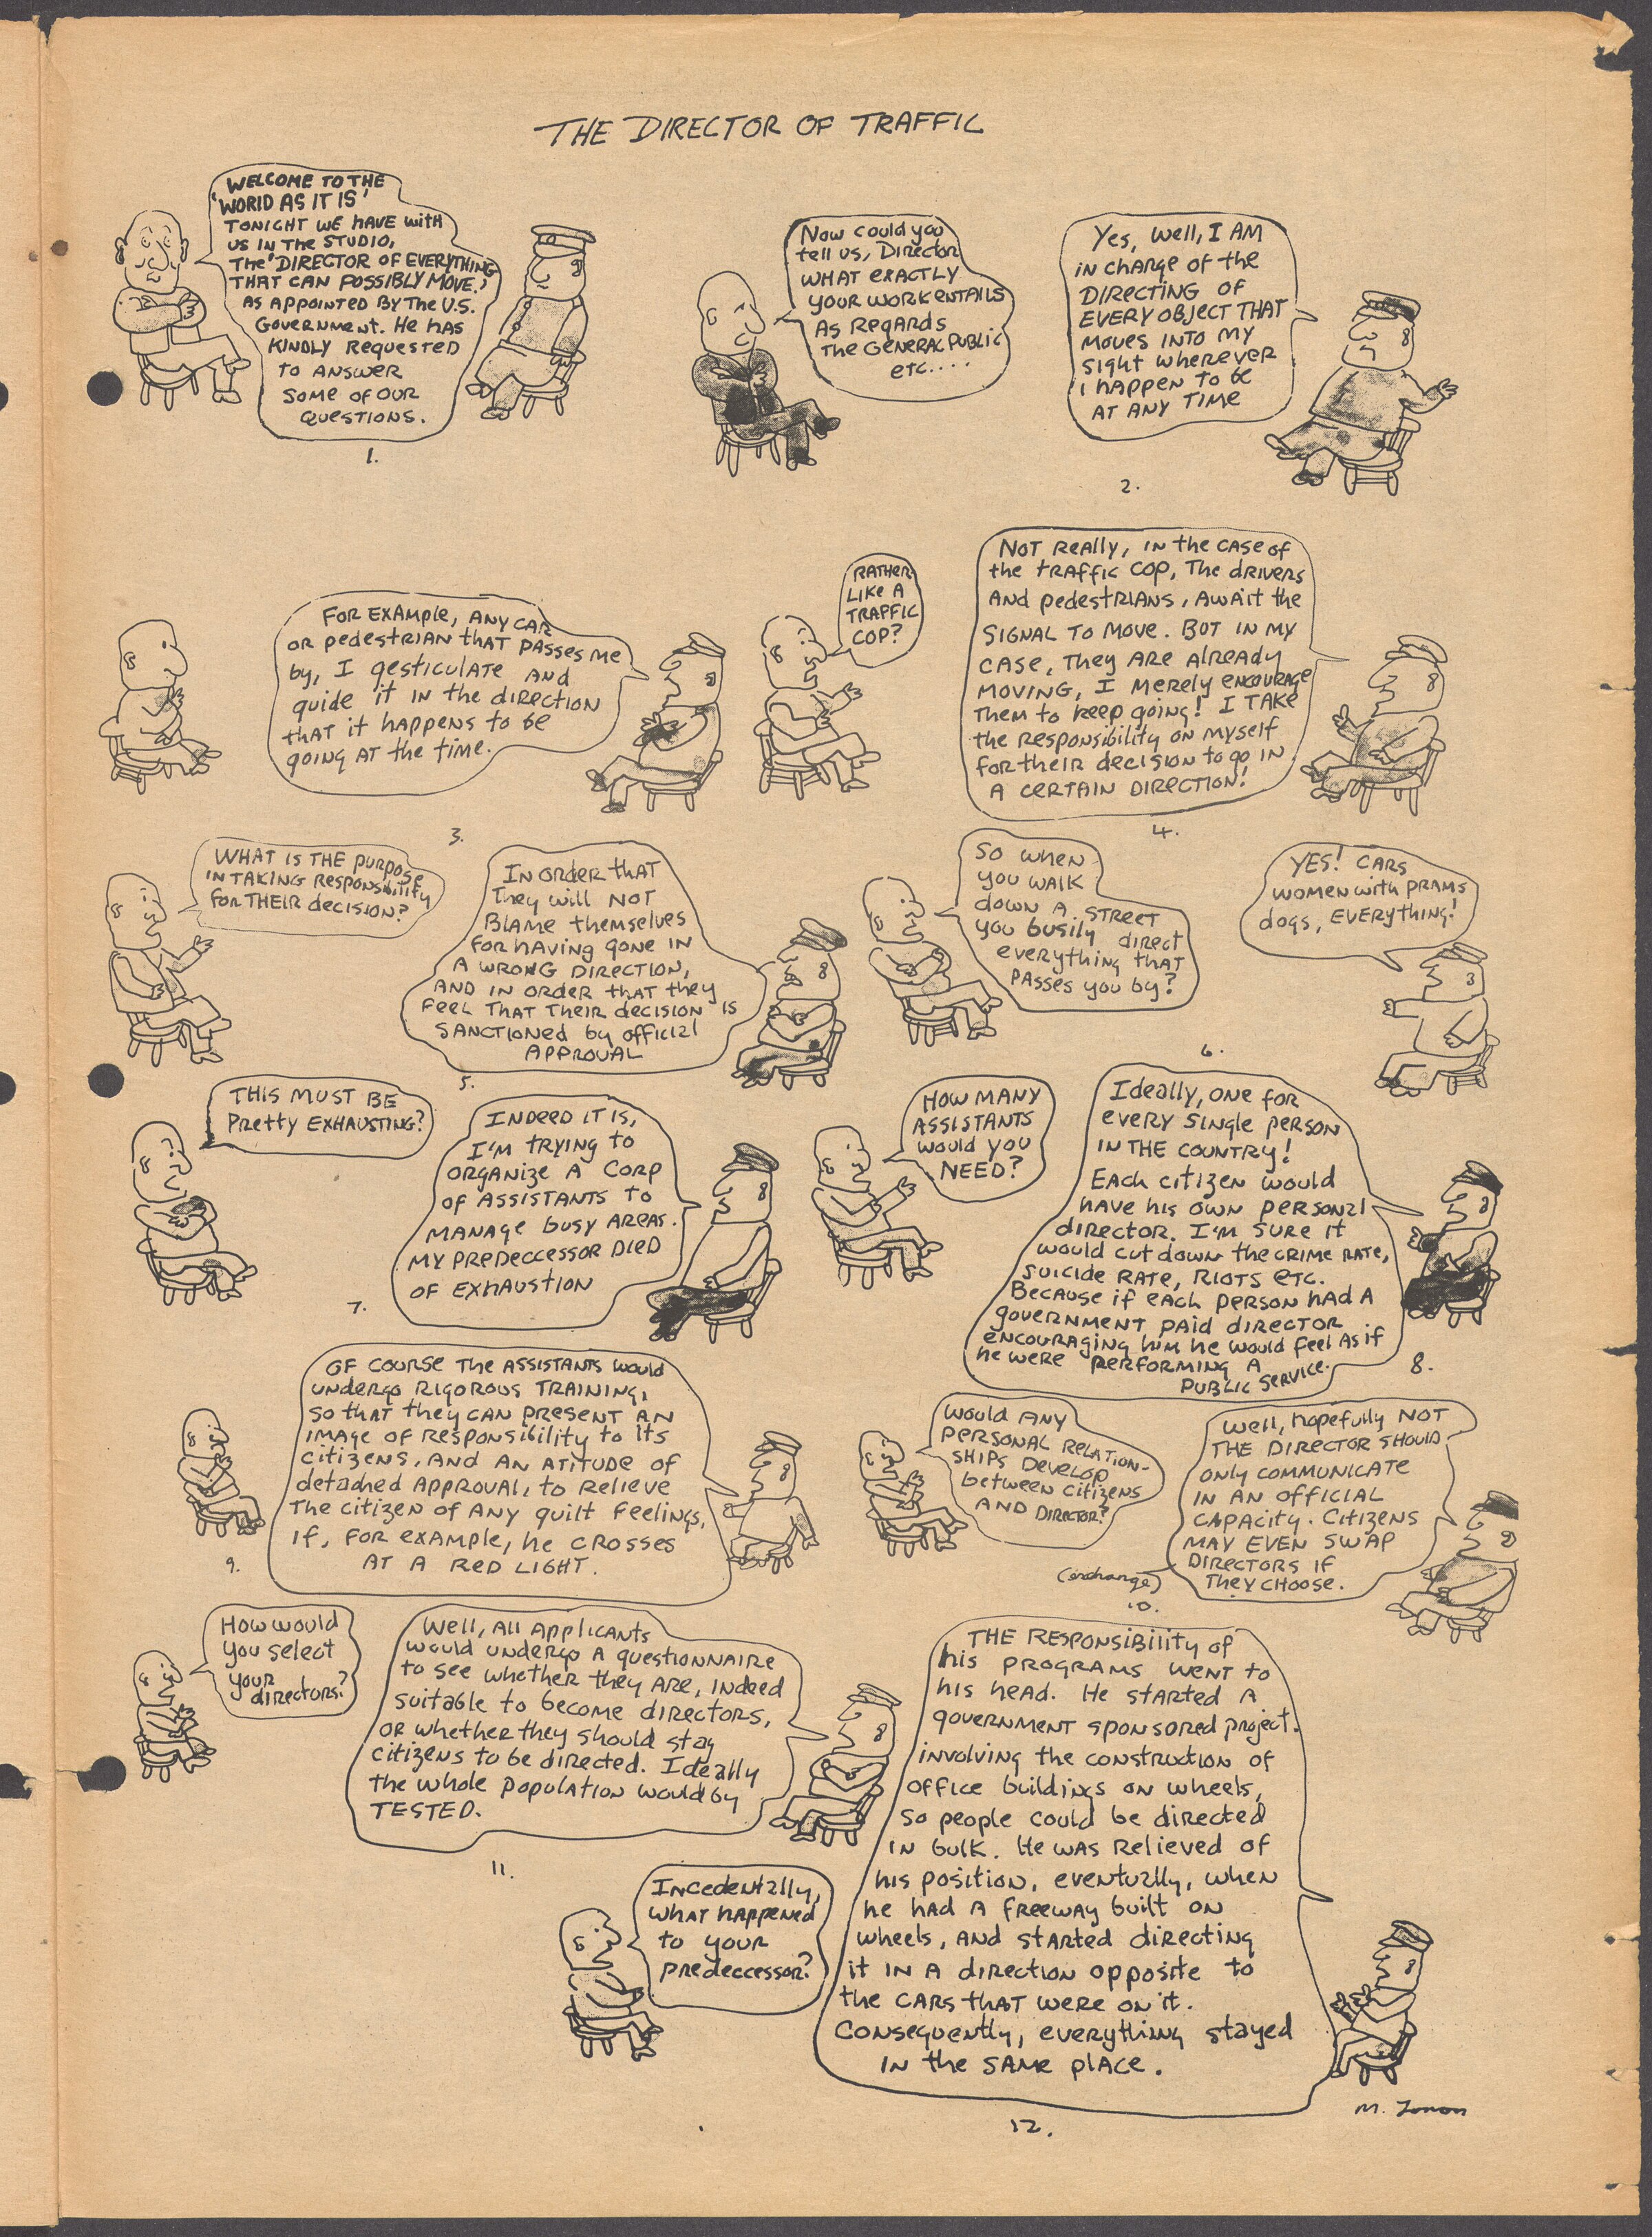 THE DIRECTOR OF TRAFFIC
WELCOME TO THE
'WORLD AS IT IS'
TONIGHT WE HAVE WITH
US IN THE STUDIO,
THE 'DIRECTOR OF EVERYTHING
THAT CAN POSSIBLY MOVE,'
AS APPOINTED BY THE U.S.
GOVERNMENT. HE HAS
KINDLY REQUESTED
TO ANSWER
SOME OF OUR
QUESTIONS.
1.
Now could you
tell us, Director
WHAT EXACTLY
YOUR WORK ENTAILS
AS REGARDS
THE GENERAL PUBLIC
ETC....
Yes, well, I AM
IN CHARGE OF the
DIRECTING OF
EVERY OBJECT THAT
MOVES INTO MY
SIGHT WHEREVER
I HAPPEN TO BE
AT ANY TIME
2.
FOR EXAMPLE, ANY CAR
OR PEDESTRIAN THAT PASSES ME
by, I GESTICULATE AND
guide it IN the direction
that it happens to be
going at the time.
3.
RATHER
LIKE A
TRAFFIC
COP?
NOT REALLY, IN the CASE of
the TRAFFIC COP, The drivers
AND pedestrians, AWAIT the
SIGNAL TO MOVE. BOT IN MY
CASE, They ARE Already
MOVING, I Merely ENCOURAGE
Them to keep going! I TAKE
the RESPONSIBILITY ON MYSELF
for their decision to go IN
A CERTAIN DIRECTION!
4.
WHAT IS THE PURPOSE
IN TAKING RESPONSIBILITY
FOR THEIR decision?
IN ORDER THAT
They will NOT
BLAME themselves
FOR HAVING GONE IN
A WRONG DIRECTION,
AND IN ORDER THAT they
FEEL THAT THEIR decision IS
SANCTIONED by official
APPROVAL
5.
SO WHEN
YOU WALK
down A STREET
you busily direct
everything THAT
PASSES you by?
YES! CARS
WOMEN with PRAMS
dogs, EVERYTHING!
6.
THIS MUST BE
Pretty EXHAUSTING?
INDEED IT IS,
I'M TRYING TO
ORGANIZE A CORP
OF ASSISTANTS TO
MANAGE busy AREAS.
MY PREDECCESSOR DIED
OF EXHAUSTION
7.
HOW MANY
ASSISTANTS
would you
NEED?
Ideally, ONE FOR
every single PERSON
IN THE COUNTRY!
EACH CITIZEN would
have his own personal
director. I'M SURE it
would cut down the CRIME RATE,
SUICIDE RATE, RIOTS ETC.
BECAUSE if EACH PERSON HAD A
GOVERNMENT PAID DIRECTOR
ENCOURAGING HIM he would feel AS if
he were PERFORMING A
PUBLIC SERVICE.
8.
OF COURSE THE ASSISTANTS would
undergo RIGOROUS TRAINING,
so that they CAN PRESENT AN
IMAGE OF RESPONSIBILITY to its
CITIZENS, AND AN ATITUDE of
detached APPROVAL, to RELIEVE
The citizen of ANY guilt feelings,
If, FOR EXAMPLE, he CROSSES
AT A RED LIGHT.
9.
would ANY
PERSONAL RELATION-
SHIPS DEVELOP
between citizens
AND DIRECTOR?
well, hopefully NOT
THE DIRECTOR SHOULD
ONLY COMMUNICATE
IN AN OFFICIAL
CAPACITY. CITIZENS
MAY EVEN SWAP
DIRECTORS IF
They CHOOSE.
(exchange)
10.
How would
you select
your
directors?
Well, All Applicants
would undergo A questionnaire
to see whether they ARE, indeed
suitable to become directors,
OR whether they should stay
citizens to be directed. Ideally
the whole population would by
TESTED.
11.
INCEDENTALLY,
WHAT HAPPENED
to your
PREDECCESSOR?
THE RESPONSIBILITY of
his PROGRAMS WENT to
his head. He started A
GOVERNMENT SPONSORED project.
involving the construction of
OFFICE buildings ON wheels,
so people could be directed
IN bulk. He was Relieved of
his position, eventually, when
he had A freeway built ON
wheels, AND started directing
it IN A direction opposite to
the CARS THAT WERE ON it.
CONSEQUENTLY, everything stayed
IN the SAME place.
12.
M.